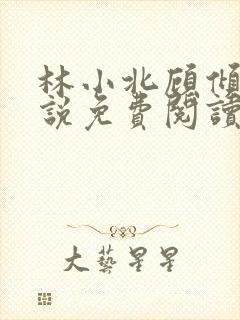 林小北顾倾
說免費閱讀
大藝星星